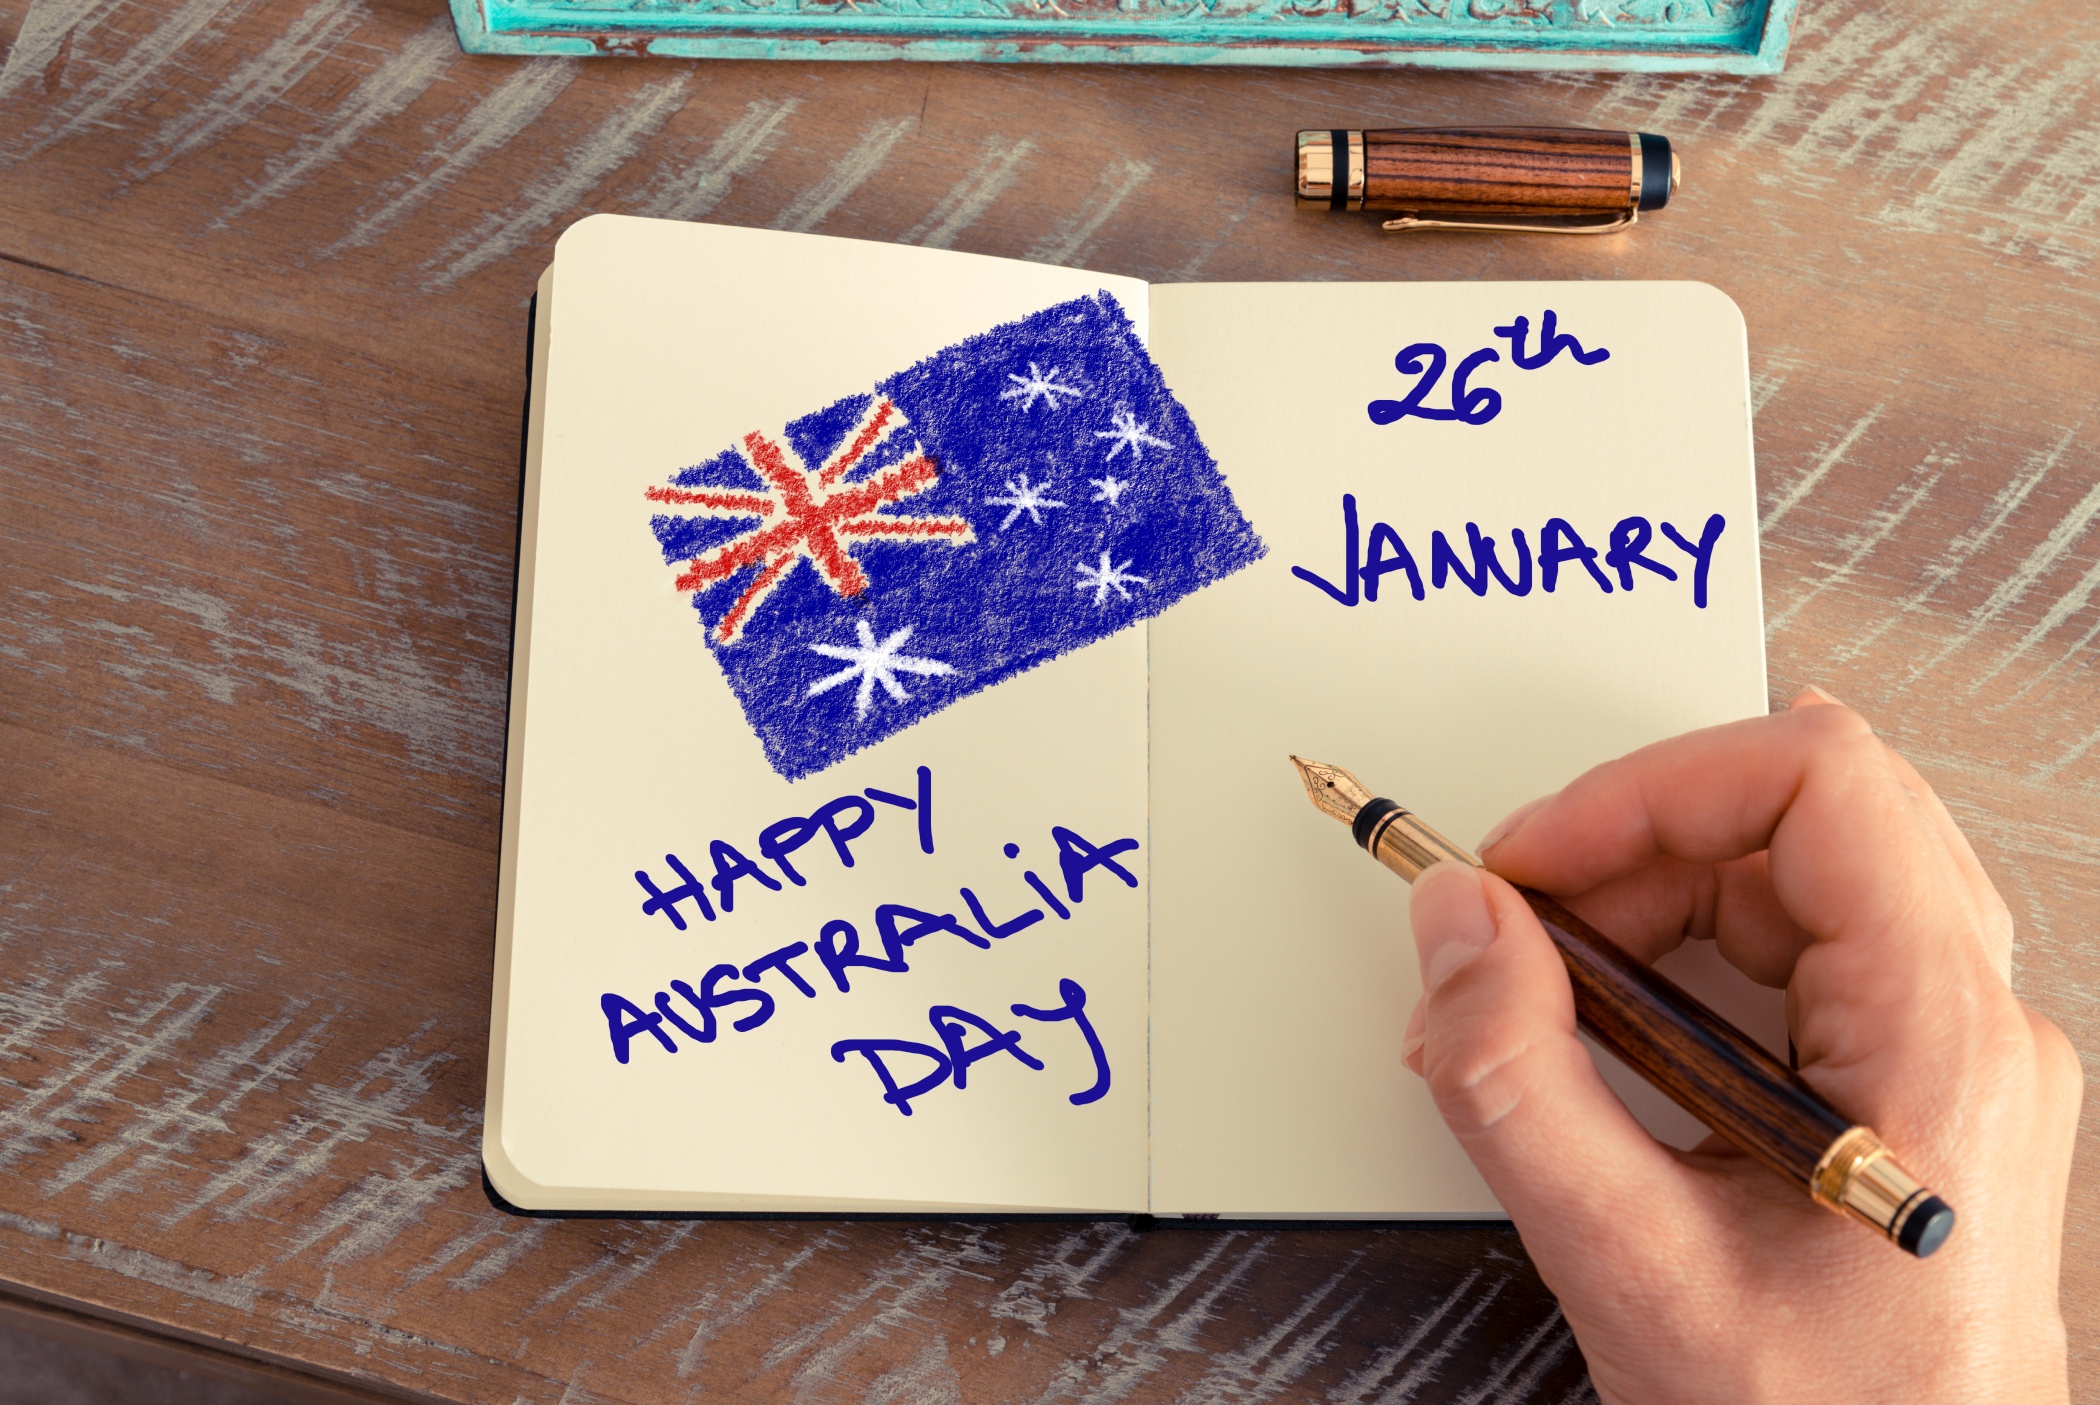 HAPPY
AUSTRALiA
DAY
26th
JANUARY